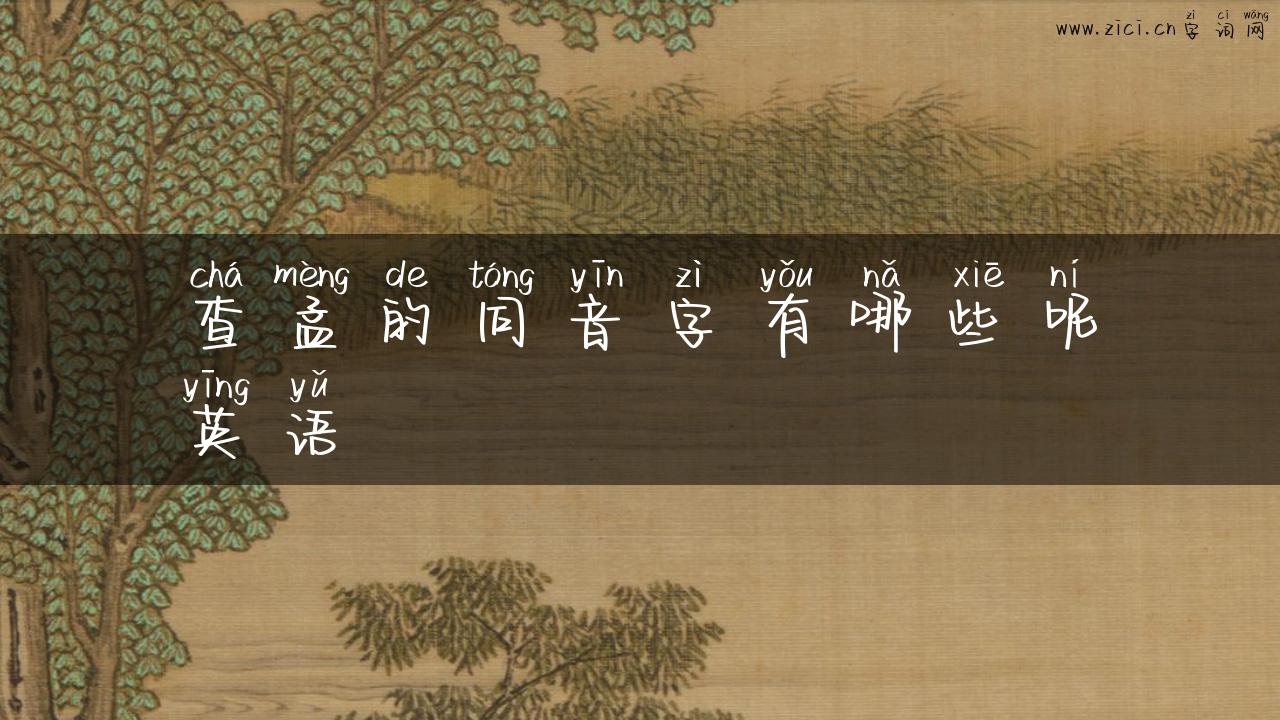 zì cí wǎng
www.zici.cn 字词网
chá mèng de tóng yīn zì yǒu nǎ xiē ní
查孟的同音字有哪些呢
yīng yǔ
英语